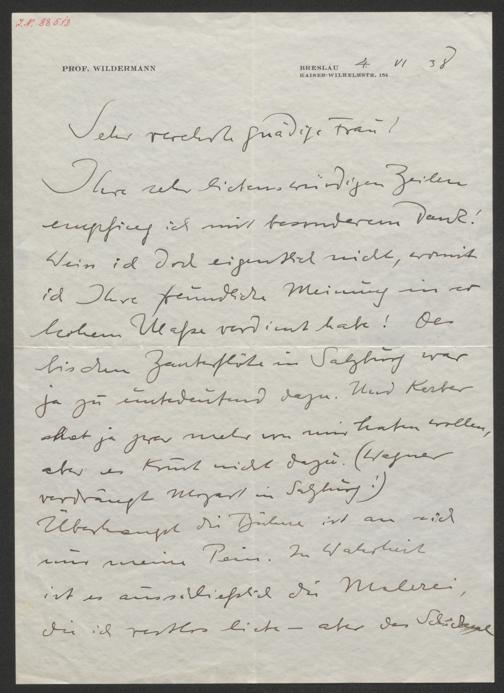 J.N. 88513
PROF. WILDERMANN
BRESLAU 4. VI 38
KAISER-WILHELMSTR. 184
Sehr verehrte gnädige Frau!
Ihre sehr liebenswürdigen Zeilen
empfing ich mit besonderem Dank!
Weiss ich doch eigentlich nicht, womit
ich Ihre freundliche Meinung in so
hohem Maße verdient habe! Das
bischen Zauberflöte in Salzburg war
ja zu unbedeutend dazu. Und Kerber
hat ja zwar mehr von mir haben wollen,
aber es kommt nicht dazu. (Wagner
verdrängt Mozart in Salzburg!)
Überhaupt die Bühne ist an sich
nur meine Pein. In Wahrheit
ist es ausschließlich die Malerei,
die ich restlos liebe – aber das Schicksal